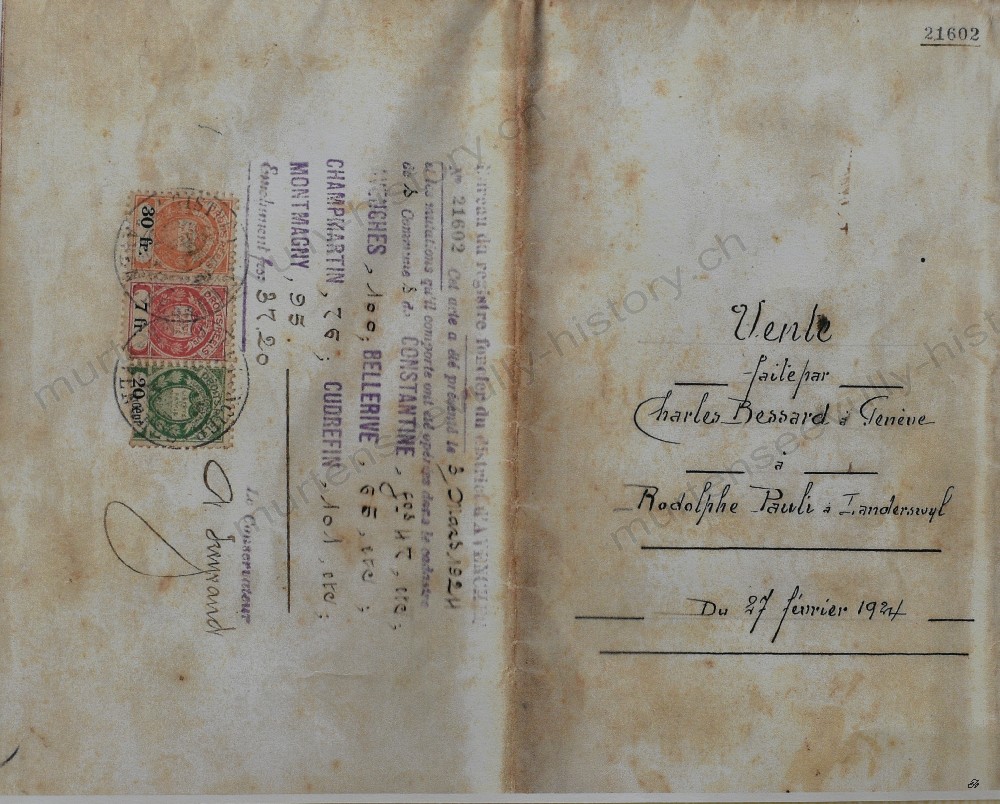 21602
Vente
faite par
Charles Bessard à Genève
à
Rodolphe Pauli à Landerswyl
Du 27 février 1924
Bureau du registre foncier du district d'AVENCHES
No 21602 Cet acte a été présenté le 3 Mars 1924
Les mutations qu'il comporte ont été opérées dans le cadastre
de s Commune s de CONSTANTINE, fos 47, etc;
AVENCHES, 100; BELLERIVE, 66, etc;
CHAMPMARTIN, 76; CUDREFIN, 101, etc;
MONTMAGNY, 95.
Emolument frs 37.20
Le Conservateur
30 fr.
7 fr.
20 cent.
murtensee-vully-history.ch
murtensee-vully-history.ch